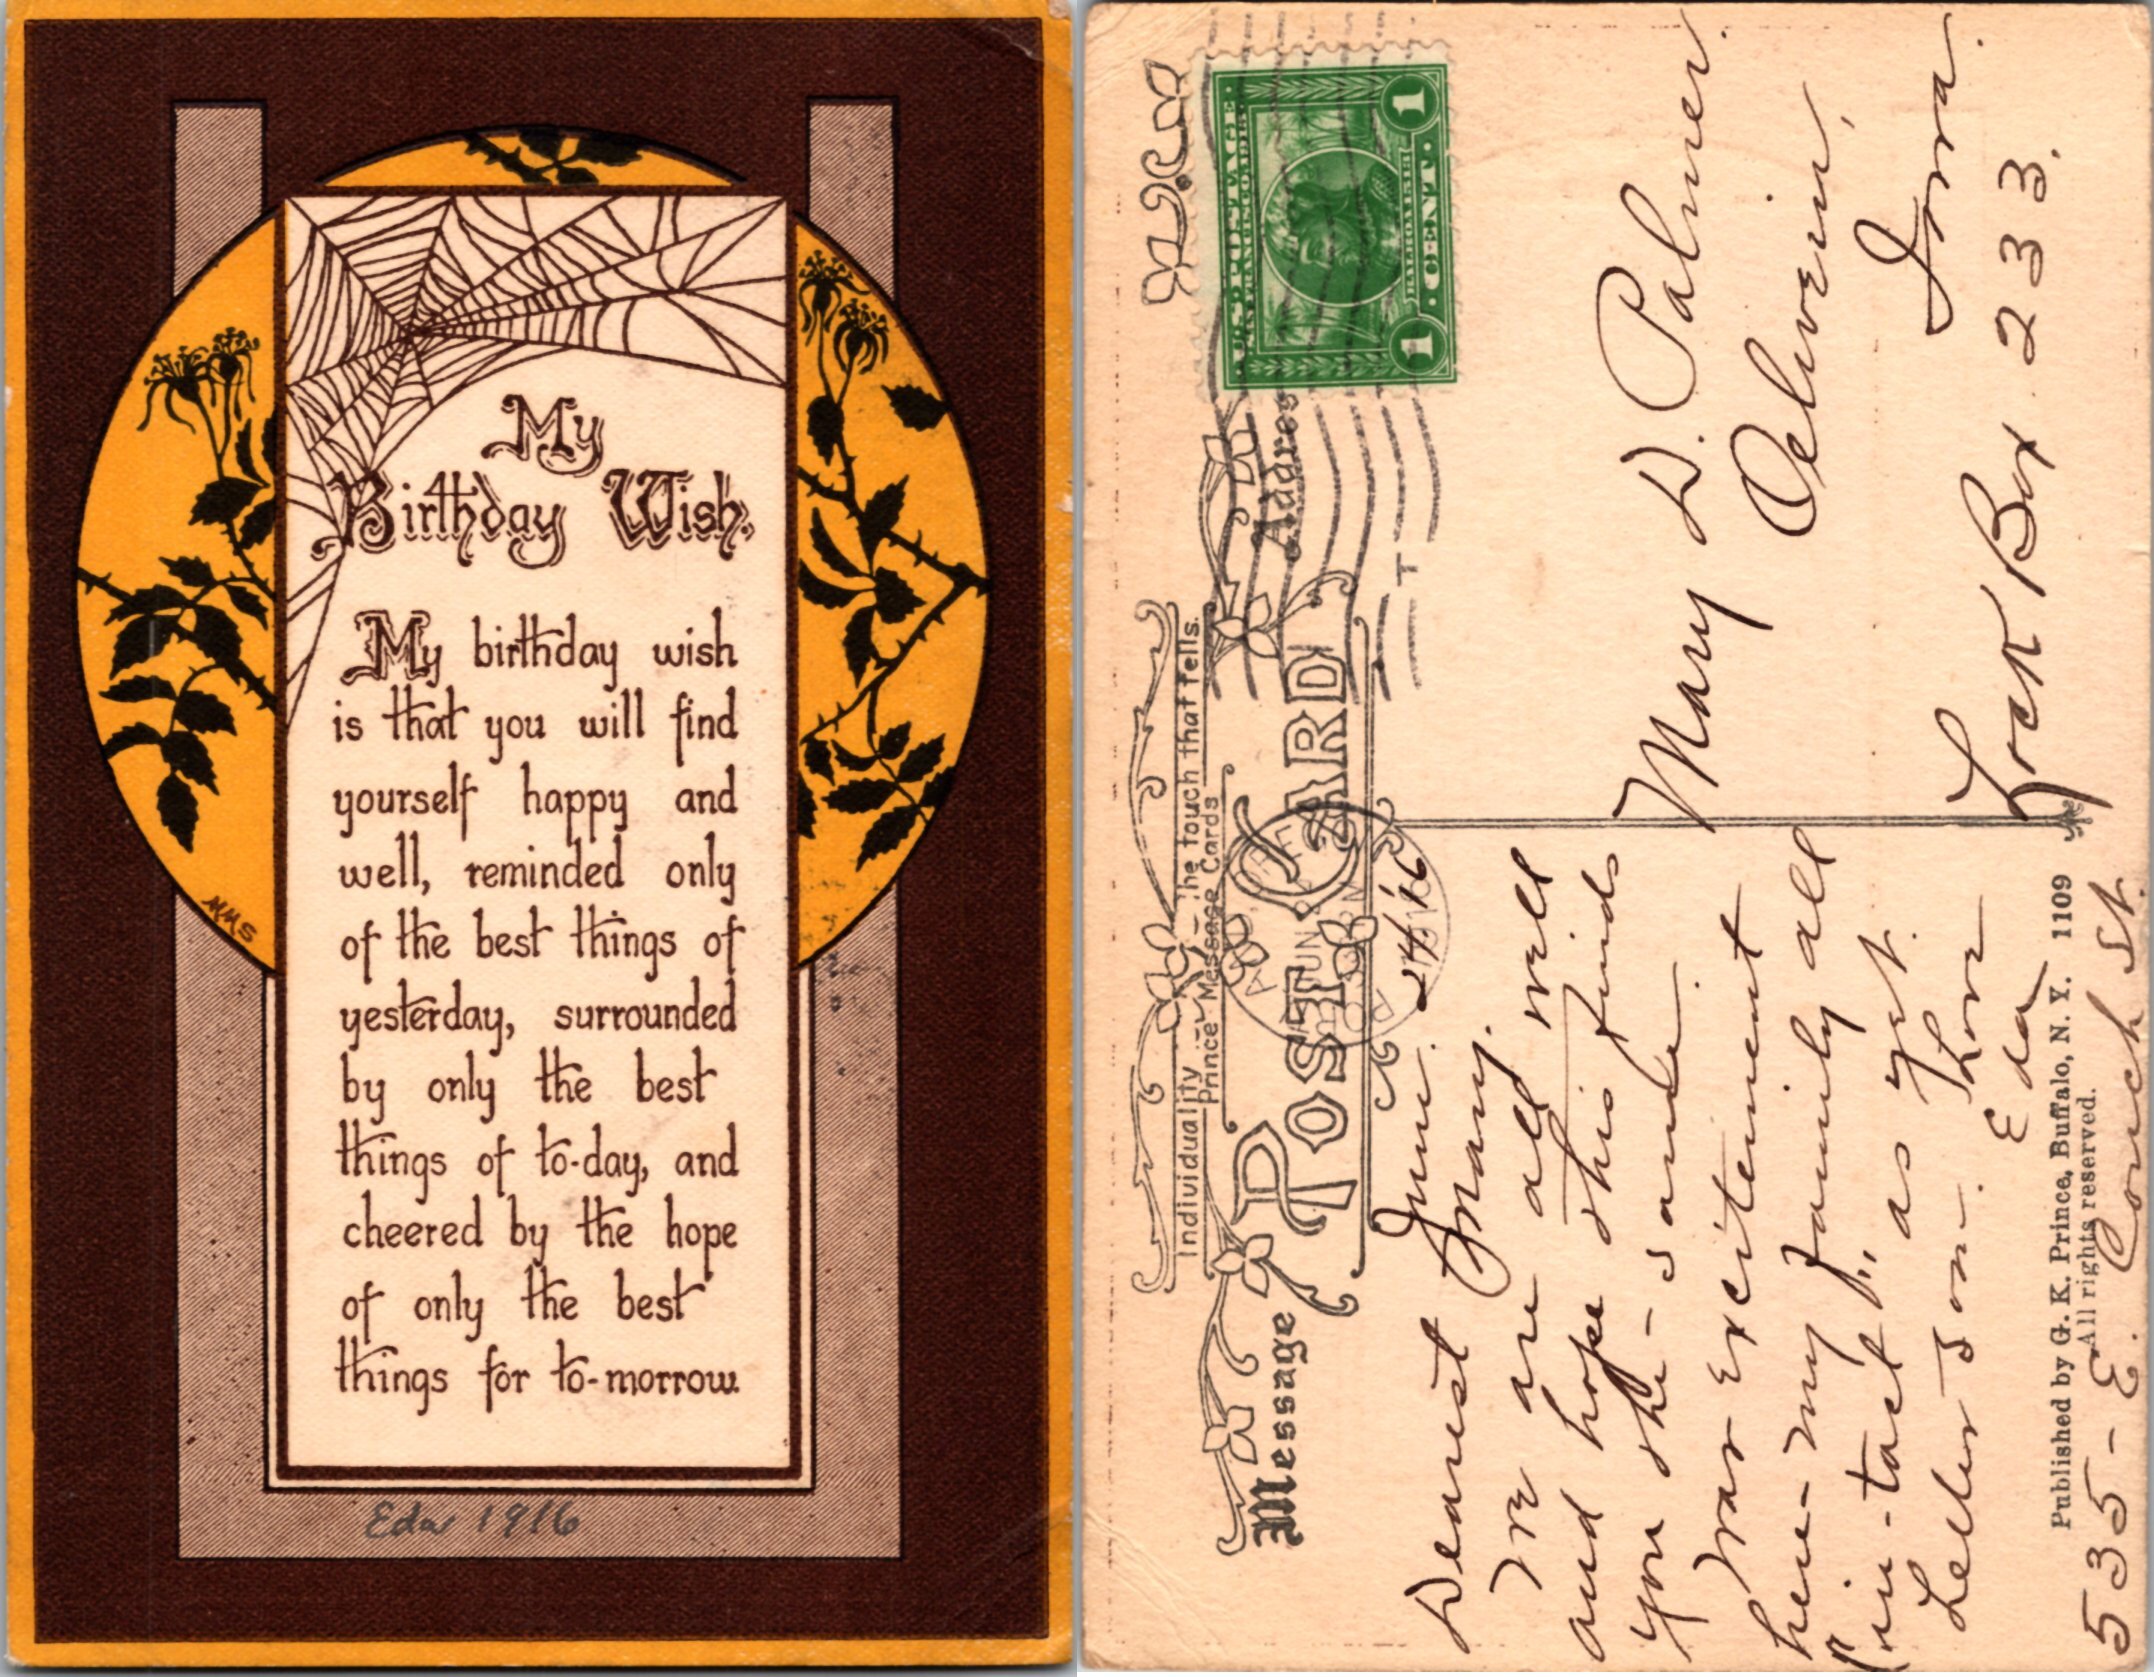 My
Birthday Wish.
My birthday wish
is that you will find
yourself happy and
well, reminded only
of the best things of
yesterday, surrounded
by only the best
things of to-day, and
cheered by the hope
of only the best
things for to-morrow.
MMS
Eda 1916
Individuality - The touch that tells.
Prince Message Cards
Message
POST CARD
Address
U.S. POSTAGE
SAN FRANCISCO
BALBOA 1513
1 CENT 1
June 24/16
Dearest Mary.
We are all well
and hope this finds
you the - same.
War Excitement
here - my family all
"in-tact" as yet.
Letter soon. Love
Eda
535 - E. Couch St.
Mary D. Palmer.
Oelwein,
Iowa.
Lock Box 233.
Published by G. K. Prince, Buffalo, N. Y. 1109
All rights reserved.